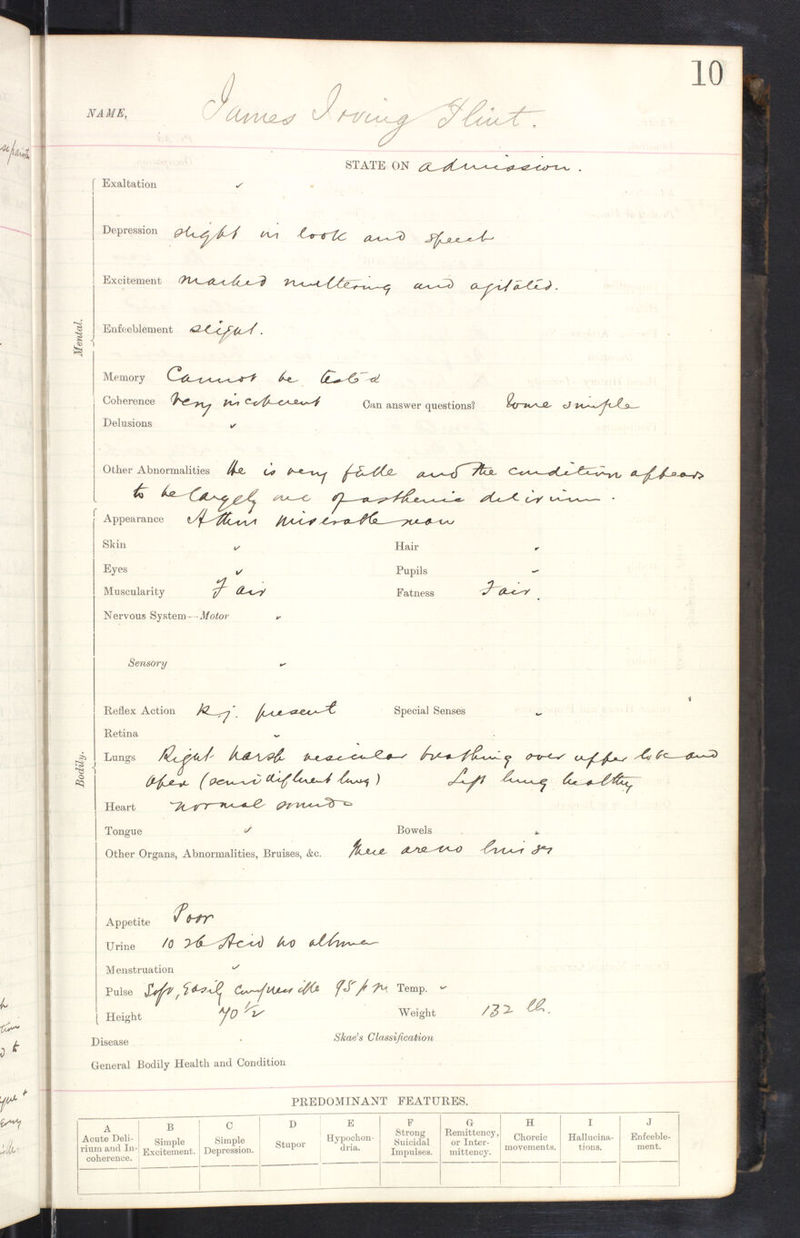 10
NAME, James Irving Flint.
STATE ON admission.
Mental.
Exaltation ✓
Depression slight in look and speech
Excitement marked muttering and agitated.
Enfeeblement slight.
Memory Cannot be tested
Coherence Very incoherent Can answer questions? Some simple
Delusions ✓
Other Abnormalities He is very futile and the condition appears
to be largely one of asthenic delirium.
Bodily.
Appearance A thin miserable man
Skin ✓ Hair ✓
Eyes ✓ Pupils ✓
Muscularity Fair Fatness Fair.
Nervous System—Motor ✓
Sensory ✓
Reflex Action K.j. present Special Senses ✓
Retina ✓
Lungs Right harsh vesicular breathing over upper lobe and
apex Left lung healthy
Heart normal sounds
Tongue ✓ Bowels
Other Organs, Abnormalities, Bruises, &c. There are no bruises
Appetite Poor
Urine 1026 Acid no albumen
Menstruation ✓
Pulse Soft, Easily compressible 95 p m Temp. ✓
Height 70 1/2 Weight 132 lb.
Disease Skae's Classification
General Bodily Health and Condition
PREDOMINANT FEATURES.
A B C D E F G H I J
Acute Delirium and Incoherence. Simple Excitement. Simple Depression. Stupor Hypochondria. Strong Suicidal Impulses. Remittency, or Intermittency. Choreic movements. Hallucinations. Enfeeblement.